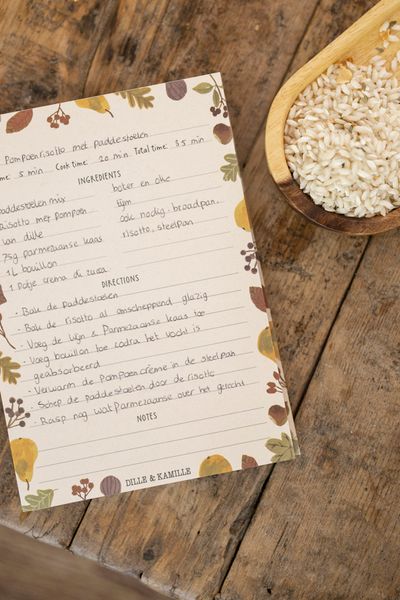 Pompoenrisotto met paddestoelen
me: 5 min Cook time: 20 min Total time: 35 min
INGREDIENTS
paddestoelen mix boter en olie
risotto met pompoen tijm
van dille ook nodig: broadpan,
75g parmezaanse kaas risotto, steelpan
1L bouillon
1 potje crema di zucca
DIRECTIONS
- Bak de paddestoelen
- Bak de risotto al omscheppend glazig
- Voeg de wijn & Parmezaanse kaas toe
- Voeg bouillon toe zodra het vocht is
geabsorbeerd
- Verwarm de pompoencrème in de steelpan
- Schep de paddestoelen door de risotto
- Rasp nog wat parmezaanse over het gerecht
NOTES
DILLE & KAMILLE